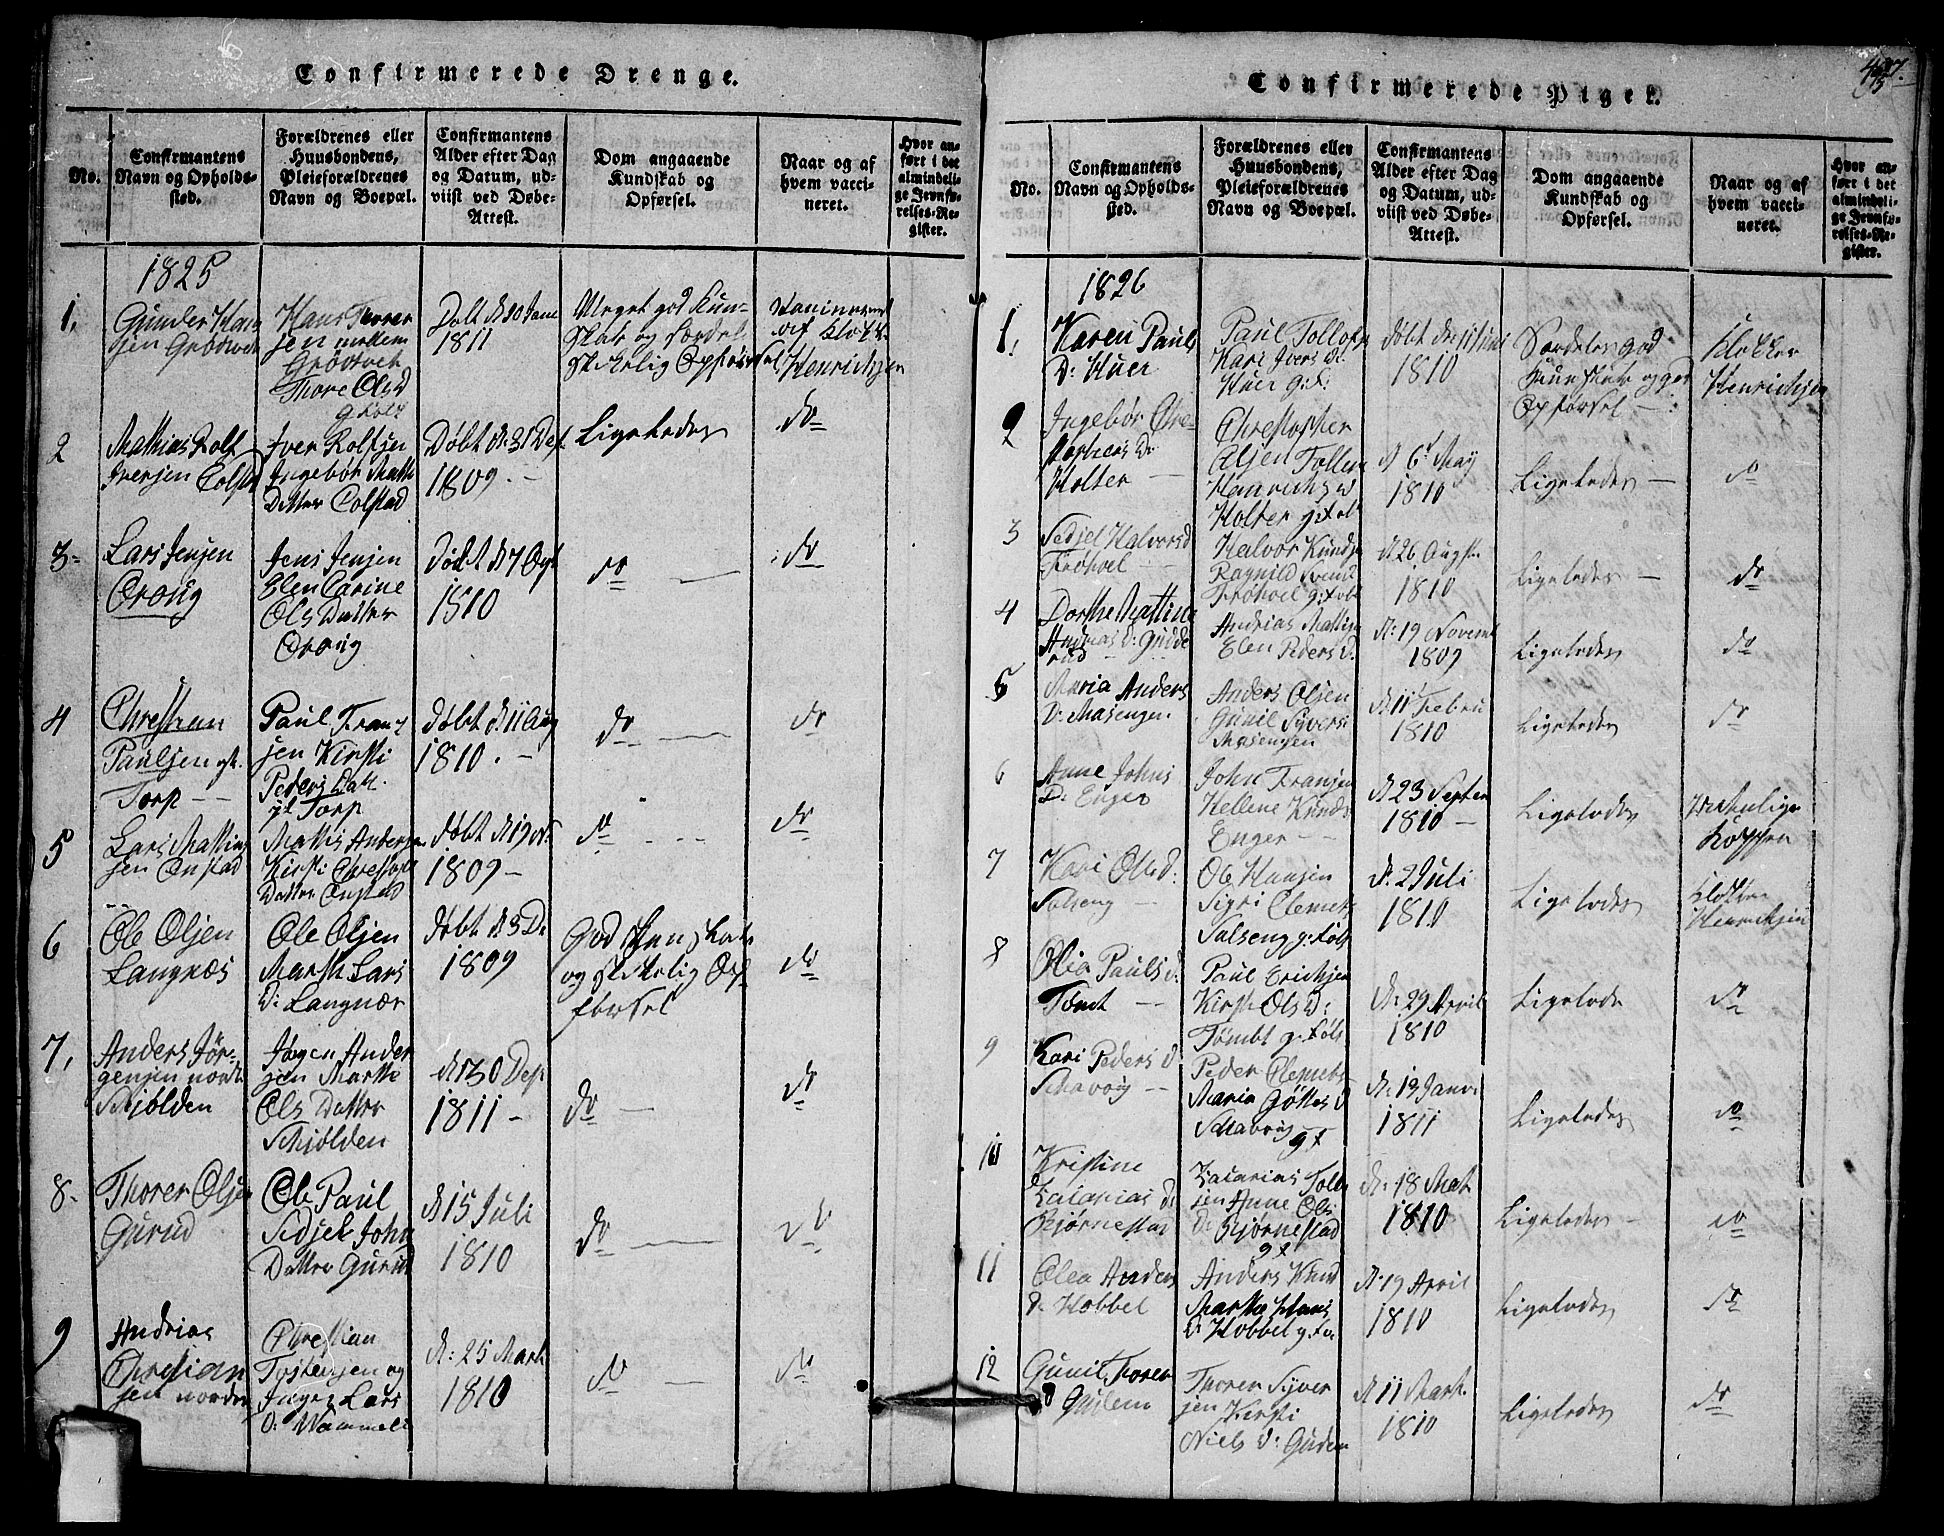 Confirmerede Drenge.
No.
Confirmantens
Navn og Opholds-
sted.
Forældrenes eller
Huusbondens,
Pleieforældrenes
Navn og Boepæl.
Confirmantens
Alder efter Dag
og Datum, ud-
viist ved Døbe-
Attest.
Dom angaaende
Kundskab og
Opførsel.
Naar og af
hvem vacci-
neret.
Hvor an-
ført i det
almindeli-
ge Jevnfø-
relses-Re-
gister.
1825
1.
Gunder Han
sen Grødtvet
Hans Thorer
sen mellem
Grødtvet
Thore Olsd
Døbt d. 20 Janu
1811
Meget god Kun-
skab og særdel
skikelig Opførsel
Vaccineret
af Klokk.
Henrichsen
2
Mathias Rolf
Iversen Colstad
Iver Rolfsen
Ingebør Math
Datter Colstad
Døbt d. 31 Des
1809. -
Ligeledes
do
3-
Lars Jensen
Oraug
Jens Jensen
Elen Carine
Ols Datter
Oraug
Døbt d. 7 Ogt
1810
do
do
4
Christian
Paulsen
Torp
Paul Fran-
sen Kirsti
Peders Datt.
Torp
Døbt d. 11 Aug
1810. -
do
do
5
Lars Mathis
sen Onstad
Mathis Andersen
Kirsti Christoph
Datter Onstad
Døbt d. 19 N.
1809 -
do
do
6
Ole Olsen
Langnæs
Ole Olsen
Marthe Lars
D: Langnæs
Døbt d. 3 De
1809
God Kunskab
og skikelig Op-
førsel
do
7,
Anders Jør-
gensen nordr
Schjølden
Jørgen Ander
sen Marthe
Ols Datter
Schjølden
d. 30 Des
1811 -
do
do
8-
Thorer Olsen
Gurud
Ole Paul
Sidsel John
Datter Gurud
d. 15 Juli
1810
do
do
9
Andreas
Christian
sen nordre
Christian
Tostensen og
Inger Lars
D: Hammel
d: 25 Mart
1810
do
do
Confirmerede Piger.
No.
Confirmantens
Navn og Opholds-
sted.
Forældrenes eller
Huusbondens,
Pleieforældrenes
Navn og Boepæl.
Confirmantens
Alder efter Dag
og Datum, ud-
viist ved Døbe-
Attest.
Dom angaaende
Kundskab og
Opførsel.
Naar og af
hvem vacci-
neret.
Hvor an-
ført i det
almindeli-
ge Jevnfø-
relses-Re-
gister.
1826
1.
Karen Pauls
D: Huer
Paul Tollofs
Kari Ivers D:
Huer g: f:
Døbt d. 11 Juni
1810
Særdeles god
Kunskab og god
Opførsel
Klokker
Henrichsen
2
Ingebør Chri-
stophers D:
Holter
Christopher
Olsen Tollen
Holter
d 6 May
1810
Ligeledes
do
3
Sidsel Halvorsd
Frøhvel
Halvor Knuds
Ragnild Svend
Frøhvel
d. 26 Augst.
1810
Ligeledes
do
4
Dorthe Mattine
Andreas D: Gudde
rud
Andreas Mathis
Elen Peders D.
d: 19 Novemb
1809
Ligeledes
do
5
Maria Anders
D: Masengen
Anders Olsen
Gunil Syvers
Masengen
d. 11 Febru
1810
Ligeledes
do
6
Anne Johns
D: Enger
John Fransen
Hellene Knuds
Enger
d. 23 Septem
1810 -
Ligeledes
7
Kari Ols d:
Salseng
Ole Hansen
Sigri Clemets
Salseng
d. 2 Juli
1810
Ligeledes
Klokker
Henrichsen
8
Olia Pauls d:
Tømt
Paul Erichsen
Kirsti Ols D:
Tømbt
d: 29 April
1810
Ligelede
do
9
Kari Peders d
Schavøig
Peder Clemets
Maria
Schavøig
d: 13 Janr.
1811
Ligeledes
do
10
Kristine
Zacarias d:
Bjørnestad
Zacarias Toll
sen Anne Ols
D: Bjørnestad
d: 18 Mat
1810
Ligeledes
do
11
Olea Anders
d. Hobbel
Anders Knud
Marthe Hans
D: Hobbel
d: 19 April
1810
Ligeledes
do
12
Gunil Thorer
d Gudem
Thorer Syver
sen Kirsti
Niels D: Gudem
d 11 Mart.
1810
Ligeledes
do